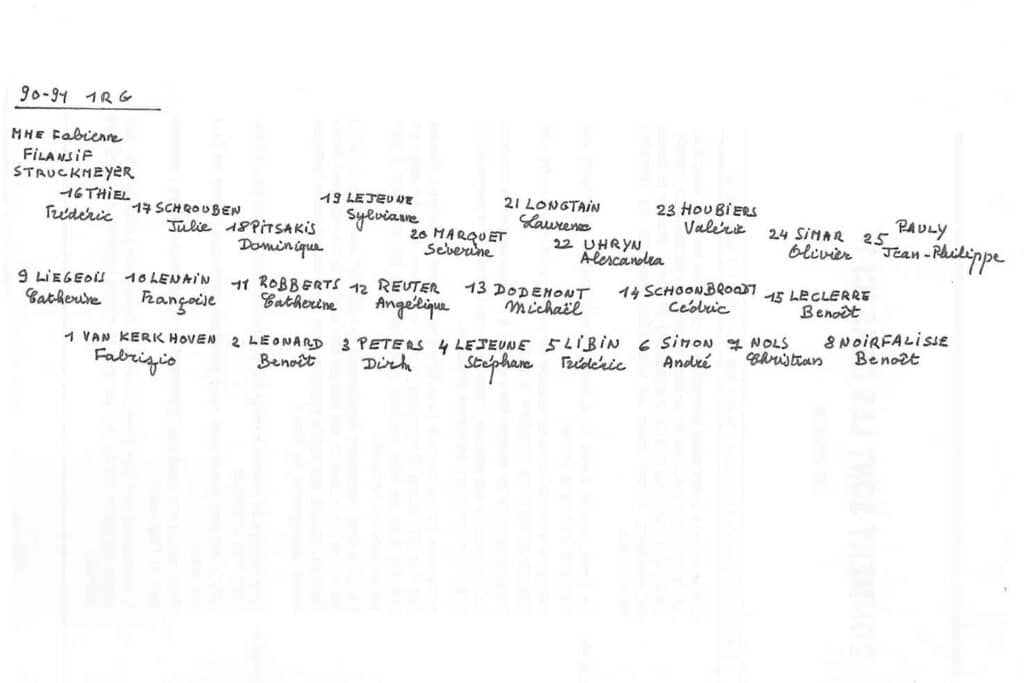 90-91 1RG
MME Fabienne
FILANSIF
STRUCKMEYER
16 THIEL
Frédéric
17 SCHROUBEN
Julie
18 PITSAKIS
Dominique
19 LEJEUNE
Sylvianne
20 MARQUET
Séverine
21 LONGTAIN
Laurence
22 UHRYN
Alescandra
23 HOUBIERS
Valérie
24 SIMAR
Olivier
25 PAULY
Jean-Philippe
9 LIEGEOIS
Catherine
10 LENAIN
Françoise
11 ROBBERTS
Catherine
12 REUTER
Angélique
13 DODEMONT
Michaël
14 SCHOONBROODT
Cédric
15 LECLERRE
Benoît
1 VAN KERKHOVEN
Fabrizio
2 LEONARD
Benoît
3 PETERS
Dirk
4 LEJEUNE
Stéphane
5 LIBIN
Frédéric
6 SIMON
André
7 NOLS
Christian
8 NOIRFALISSE
Benoît